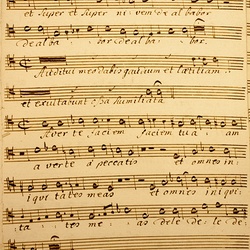 et super et super ni vem de al babor
dealba bor dealba bor.
Auditui meo dabis gaudium et lætitiam:
et exultabunt: sa humiliata
Averte faciem faciem tu a am
a verte a peccatis et omnes in:
iqui tates meas et omnes iniqui:
ta tes me as dele de le de